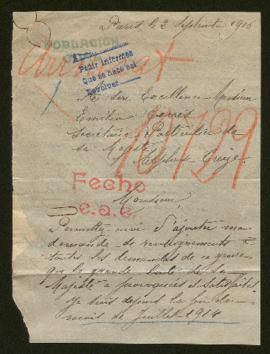 Paris le 2 Septembre 1916
POBLACION
Pedir informes
que se hace est
devolver
A Son Excellence Monsieur
Emilio Torres
Secrétaire Particulier de
Sa Majesté Alphonse Treize
10129
Fecho
e.a.c.
Monsieur,
Permettez moi d'ajouter ma
demande de renseignements à
toutes les demandes de ce genre
que la grande bonté de Sa
Majesté a provoquées et satisfaites.
Je suis depuis la fin du
mois de Juillet 1914